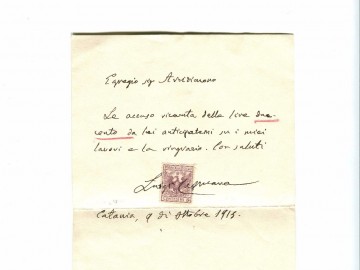 Egregio sig Avvedimano
Le accuso ricevuta delle lire due-
cento da lei anticipatemi su i miei
lavori e La ringrazio. Con saluti
Luigi Capuana
Catania, 9 di ottobre 1913.